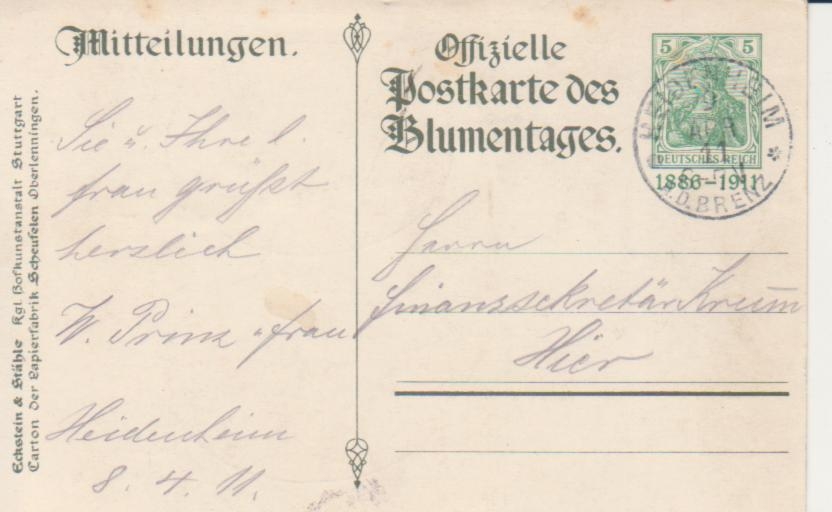 Mitteilungen.
Offizielle
Postkarte des
Blumentages.
5 5
DEUTSCHES REICH
1886-1911
HEIDENHEIM
APR
11
A.D. BRENZ
Sie u. Ihre l.
frau grüßt
herzlich
W. Prinz u frau
Heidenheim
8. 4. 11.
Herrn
Finanzsekretär
Hier
Eckstein & Stähle Kgl. Hofkunstanstalt Stuttgart
Carton der Papierfabrik Scheufelen Oberlenningen.